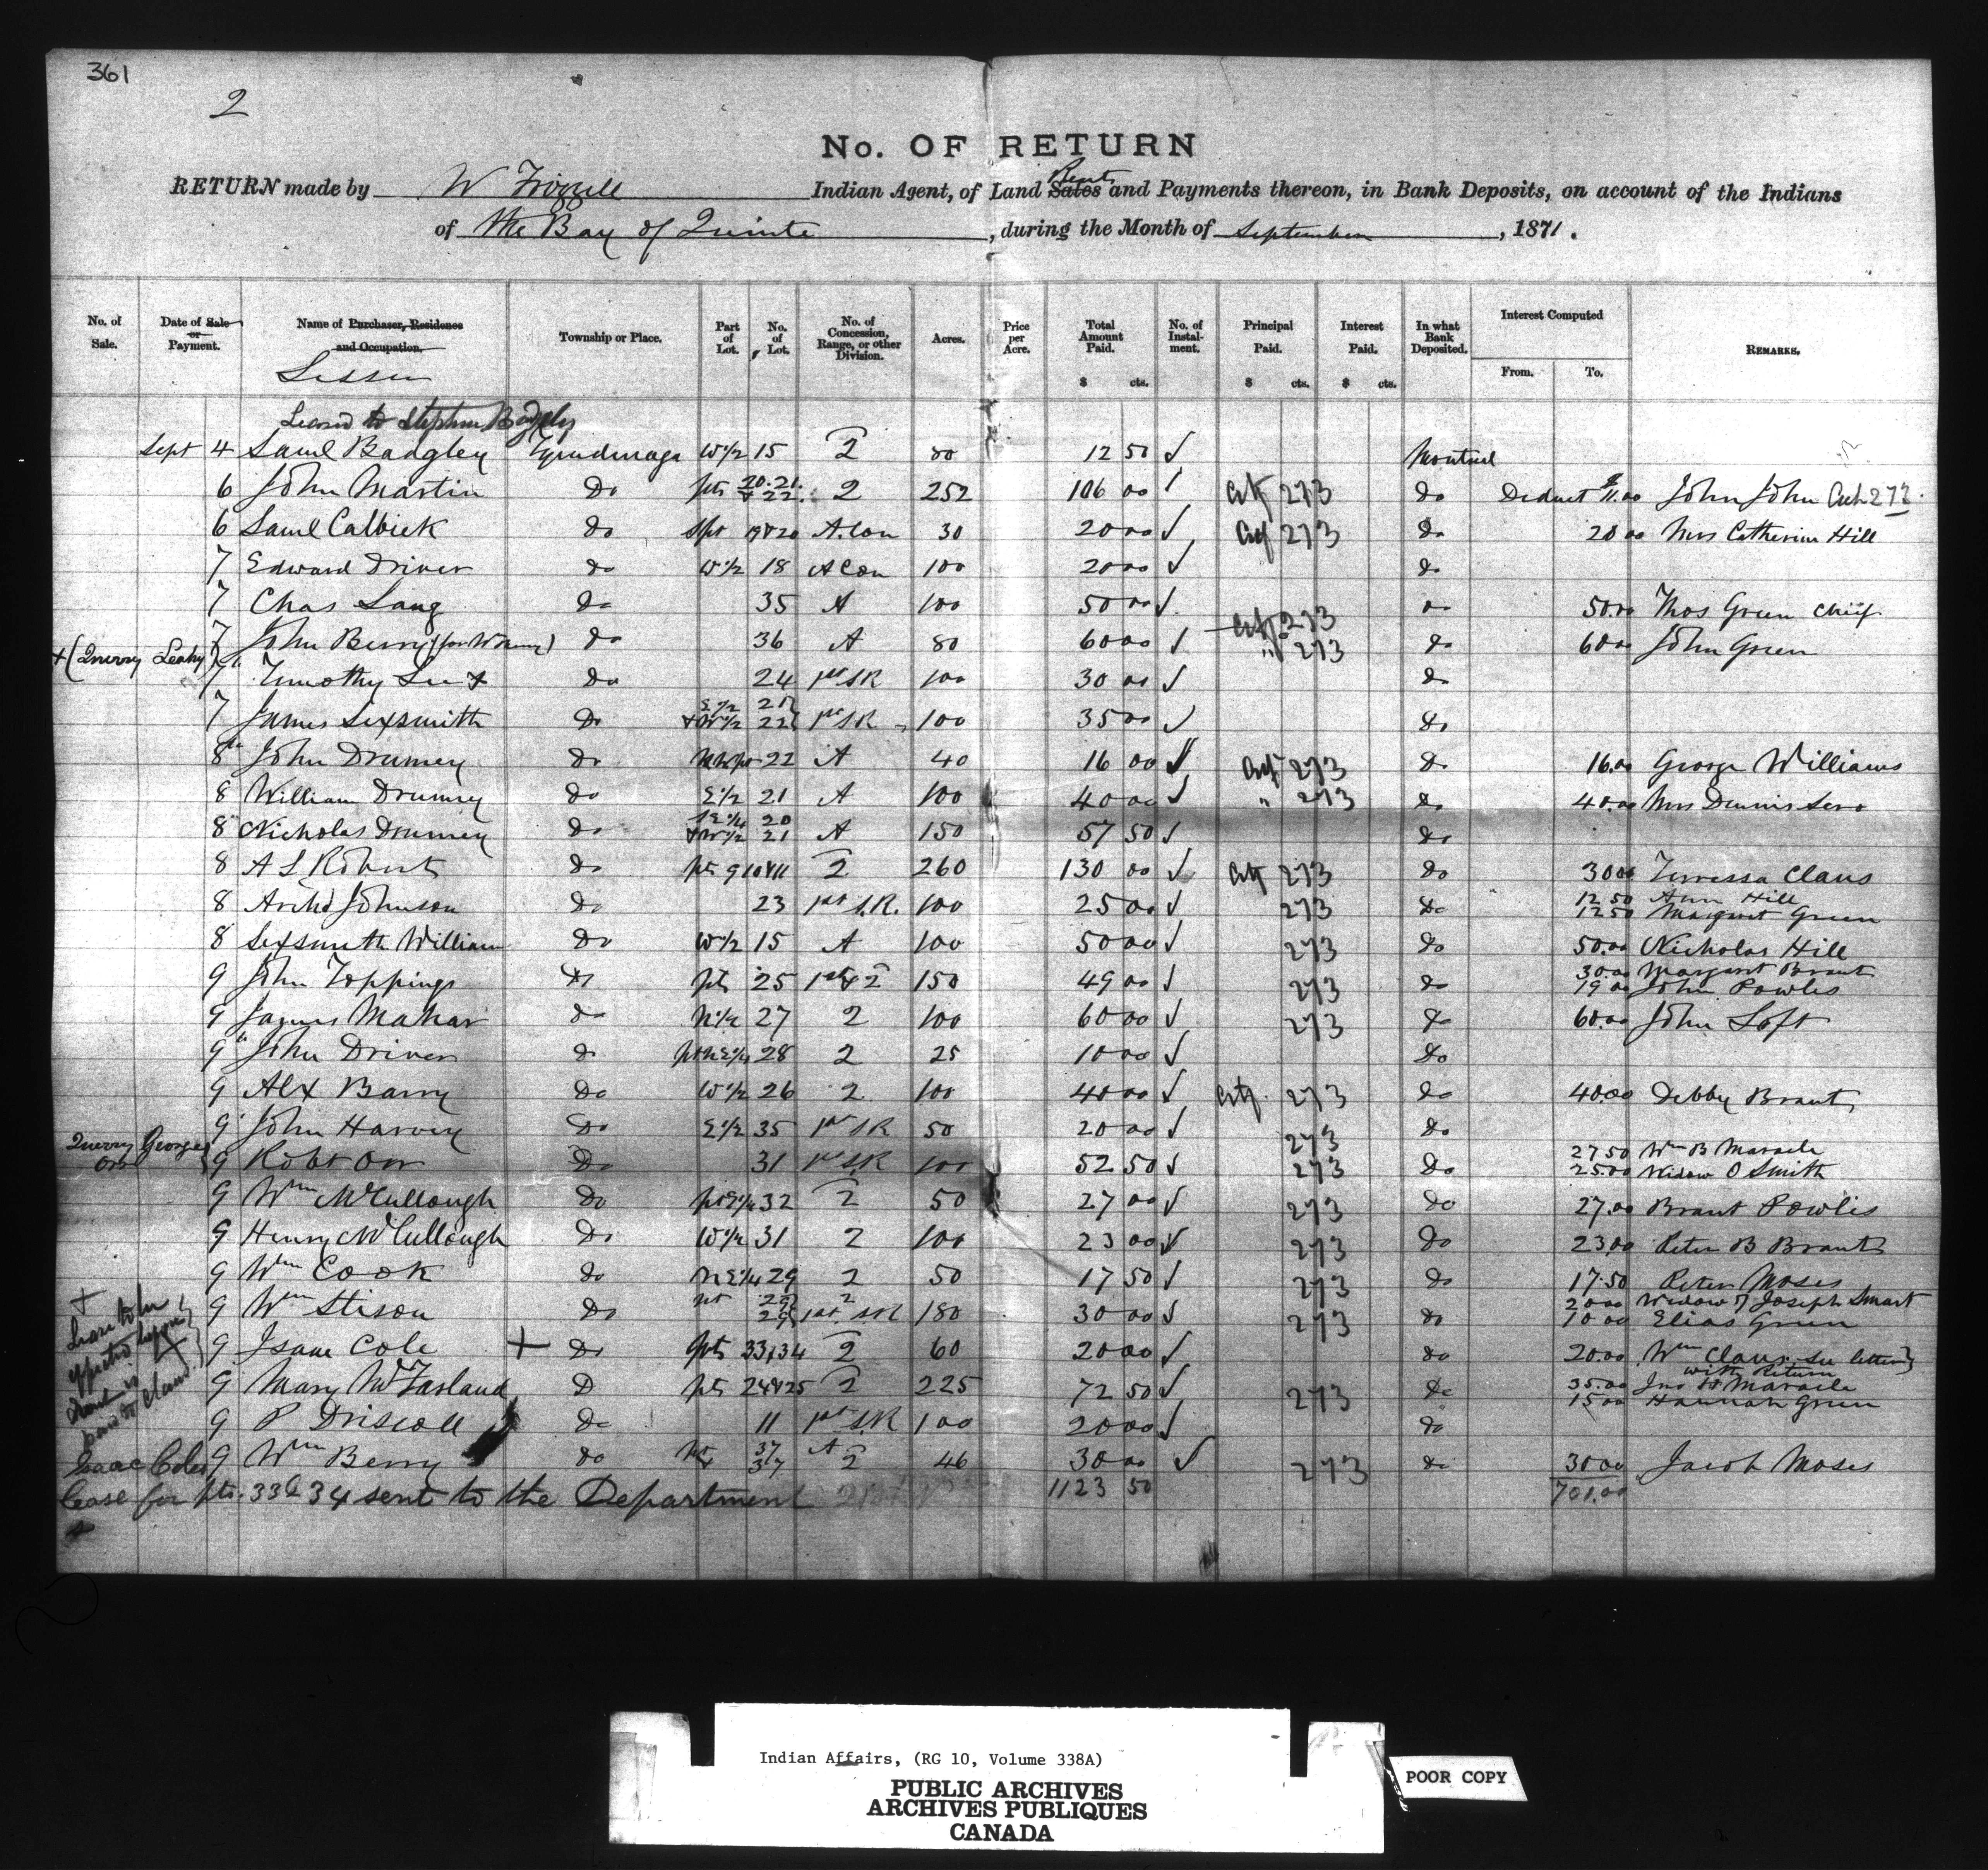 361
2
No. OF RETURN
RETURN made by W Frizzell Indian Agent, of Land Sales Rents and Payments thereon, in Bank Deposits, on account of the Indians
of the Bay of Quinte, during the Month of September, 1871.
No. of Sale. Date of Sale or Payment. Name of Purchaser, Residence and Occupation. Township or Place. Part of Lot. No. of Lot. No. of Concession, Range, or other Division. Acres. Price per Acre. Total Amount Paid. $ cts. No. of Instalment. Principal Paid. $ cts. Interest Paid. $ cts. In what Bank Deposited. Interest Computed From. To. REMARKS.
Lessee
Leased to Stephen Badgley
Sept 4 Saml Badgley Tyendinaga W 1/2 15 2 80 12 50 Montreal
6 John Martin Do pts 20.21. & 22. 2 252 106 00 273 do Deduct $11.00 John John 273.
6 Saml Calbick do Spt 19&20 A. Con 30 20 00 273 do 20 00 Mrs Catherine Hill
7 Edward Driver do W 1/2 18 A Con 100 20 00 do
7 Chas Lang do 35 A 100 50 00 273 do 50.00 Thos Green Chief
7 John Berry (for W Berry) do 36 A 80 60 00 " 273 do 60 00 John Green
+ (Query Leahy) 7 Timothy Lee + do 24 1st S R 100 30 00 do
7 James Sexsmith Do E 1/2 21 & W 1/2 22 1st S R 100 35 00 do
8th John Drumey Do NW pt 22 A 40 16 00 273 do 16.00 George Williams
8 William Drumey Do E 1/2 21 A 100 40 00 " 273 do 40 00 Mrs Dennis Sero
8 Nicholas Drumey Do SE 1/4 20 & W 1/2 21 A 150 57 50 do
8 A S Robert Do pts 9 10&11 2 260 130 00 273 do 30 00 Terressa Claus
8 Archd Johnson Do 23 1st S.R. 100 25 00 273 Do 12 50 Ann Hill
12 50 Margaret Green
8 Sexsmith William Do W 1/2 15 A 100 50 00 273 do 50.00 Nicholas Hill
9 John Toppings Do pts 25 1st & 2 150 49 00 273 do 30.00 Margaret Brant
19 00 John Powlis
9 James Mahar do N 1/2 27 2 100 60 00 273 do 60.00 John Loft
9th John Driver do pt NE 1/4 28 2 25 10 00 Do
9 Alx Barry Do W 1/2 26 2 100 40 00 273 do 40.00 Debby Brant
9 John Harvey Do E 1/2 35 1st S R 50 20 00 273 Do
Query George Orr 9 Robt Orr Do 31 1st S.R 100 52 50 273 Do 27 50 Wm B Maracle
25 00 Widow O Smith
9 Wm McCullough Do pt 32 2 50 27 00 273 do 27.00 Brant Powlis
9 Henry McCullough Do W 1/2 31 2 100 23 00 273 Do 23.00 Peter B Brant
9 Wm Cook do NE 1/4 29 2 50 17 50 273 do 17.50 Peter Moses
9 Wm Stison Do pt 29 29 2 1st S R 180 30 00 273 do 20 00 Widow of Joseph Smart
10 00 Elias Green
9 Isaac Cole + Do pts 33,34 2 60 20 00 do 20.00 Wm Claus see letter with Return
9 Mary McFarland D pts 24&25 2 225 72 50 273 do 35.00 Jno H Maracle
15 00 Hannah Green
9 P Driscoll Do 11 1st S.R 100 20 00 do
9 Wm Berry do pt 37 37 A 2 46 30 00 273 do 30 00 Jacob Moses
+ Lease to be
Isaac Coles
lease for pts. 33 & 34 sent to the Department 1123 50 701.00
Indian Affairs, (RG 10, Volume 338A)
PUBLIC ARCHIVES
ARCHIVES PUBLIQUES
CANADA
POOR COPY